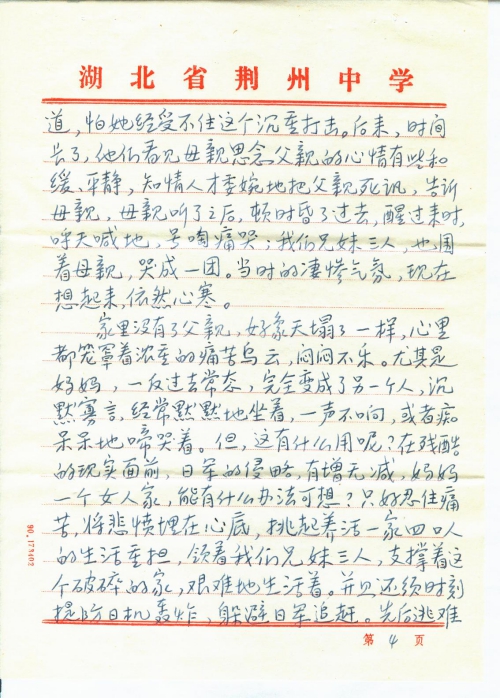 湖北省荆州中学
道，怕她经受不住这个沉重打击。后来，时间
长了，他们看见母亲思念父亲的心情有些和
缓、平静，知情人才委婉地把父亲死讯，告诉
母亲，母亲听了之后，顿时昏了过去，醒过来时，
呼天喊地，号啕痛哭；我们兄妹三人，也围
着母亲，哭成一团。当时的凄惨气氛，现在
想起来，依然心寒。
家里没有了父亲，好象天塌了一样，心里
都笼罩着浓重的痛苦乌云，闷闷不乐。尤其是
妈妈，一反过去常态，完全变成了另一个人，沉
默寡言，经常默默地坐着，一声不响，或者痴
呆呆地啼哭着。但，这有什么用呢？在残酷
的现实面前，日军的侵略，有增无减，妈妈
一个女人家，能有什么办法可想？只好忍住痛
苦，将悲愤埋在心底，挑起养活一家四口人
的生活重担，领着我们兄妹三人，支撑着这
个破碎的家，艰难地生活着。并且还须时刻
提防日机轰炸，躲避日军追赶。先后逃难
第 4 页
90.173402